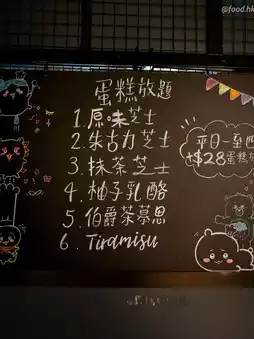 @food.hk
蛋糕放題
1.原味芝士
2.朱古力芝士
3.抹茶芝士
4.柚子乳酪
5.伯爵茶慕思
6.Tiramisu
平日一至四
+$28蛋糕放